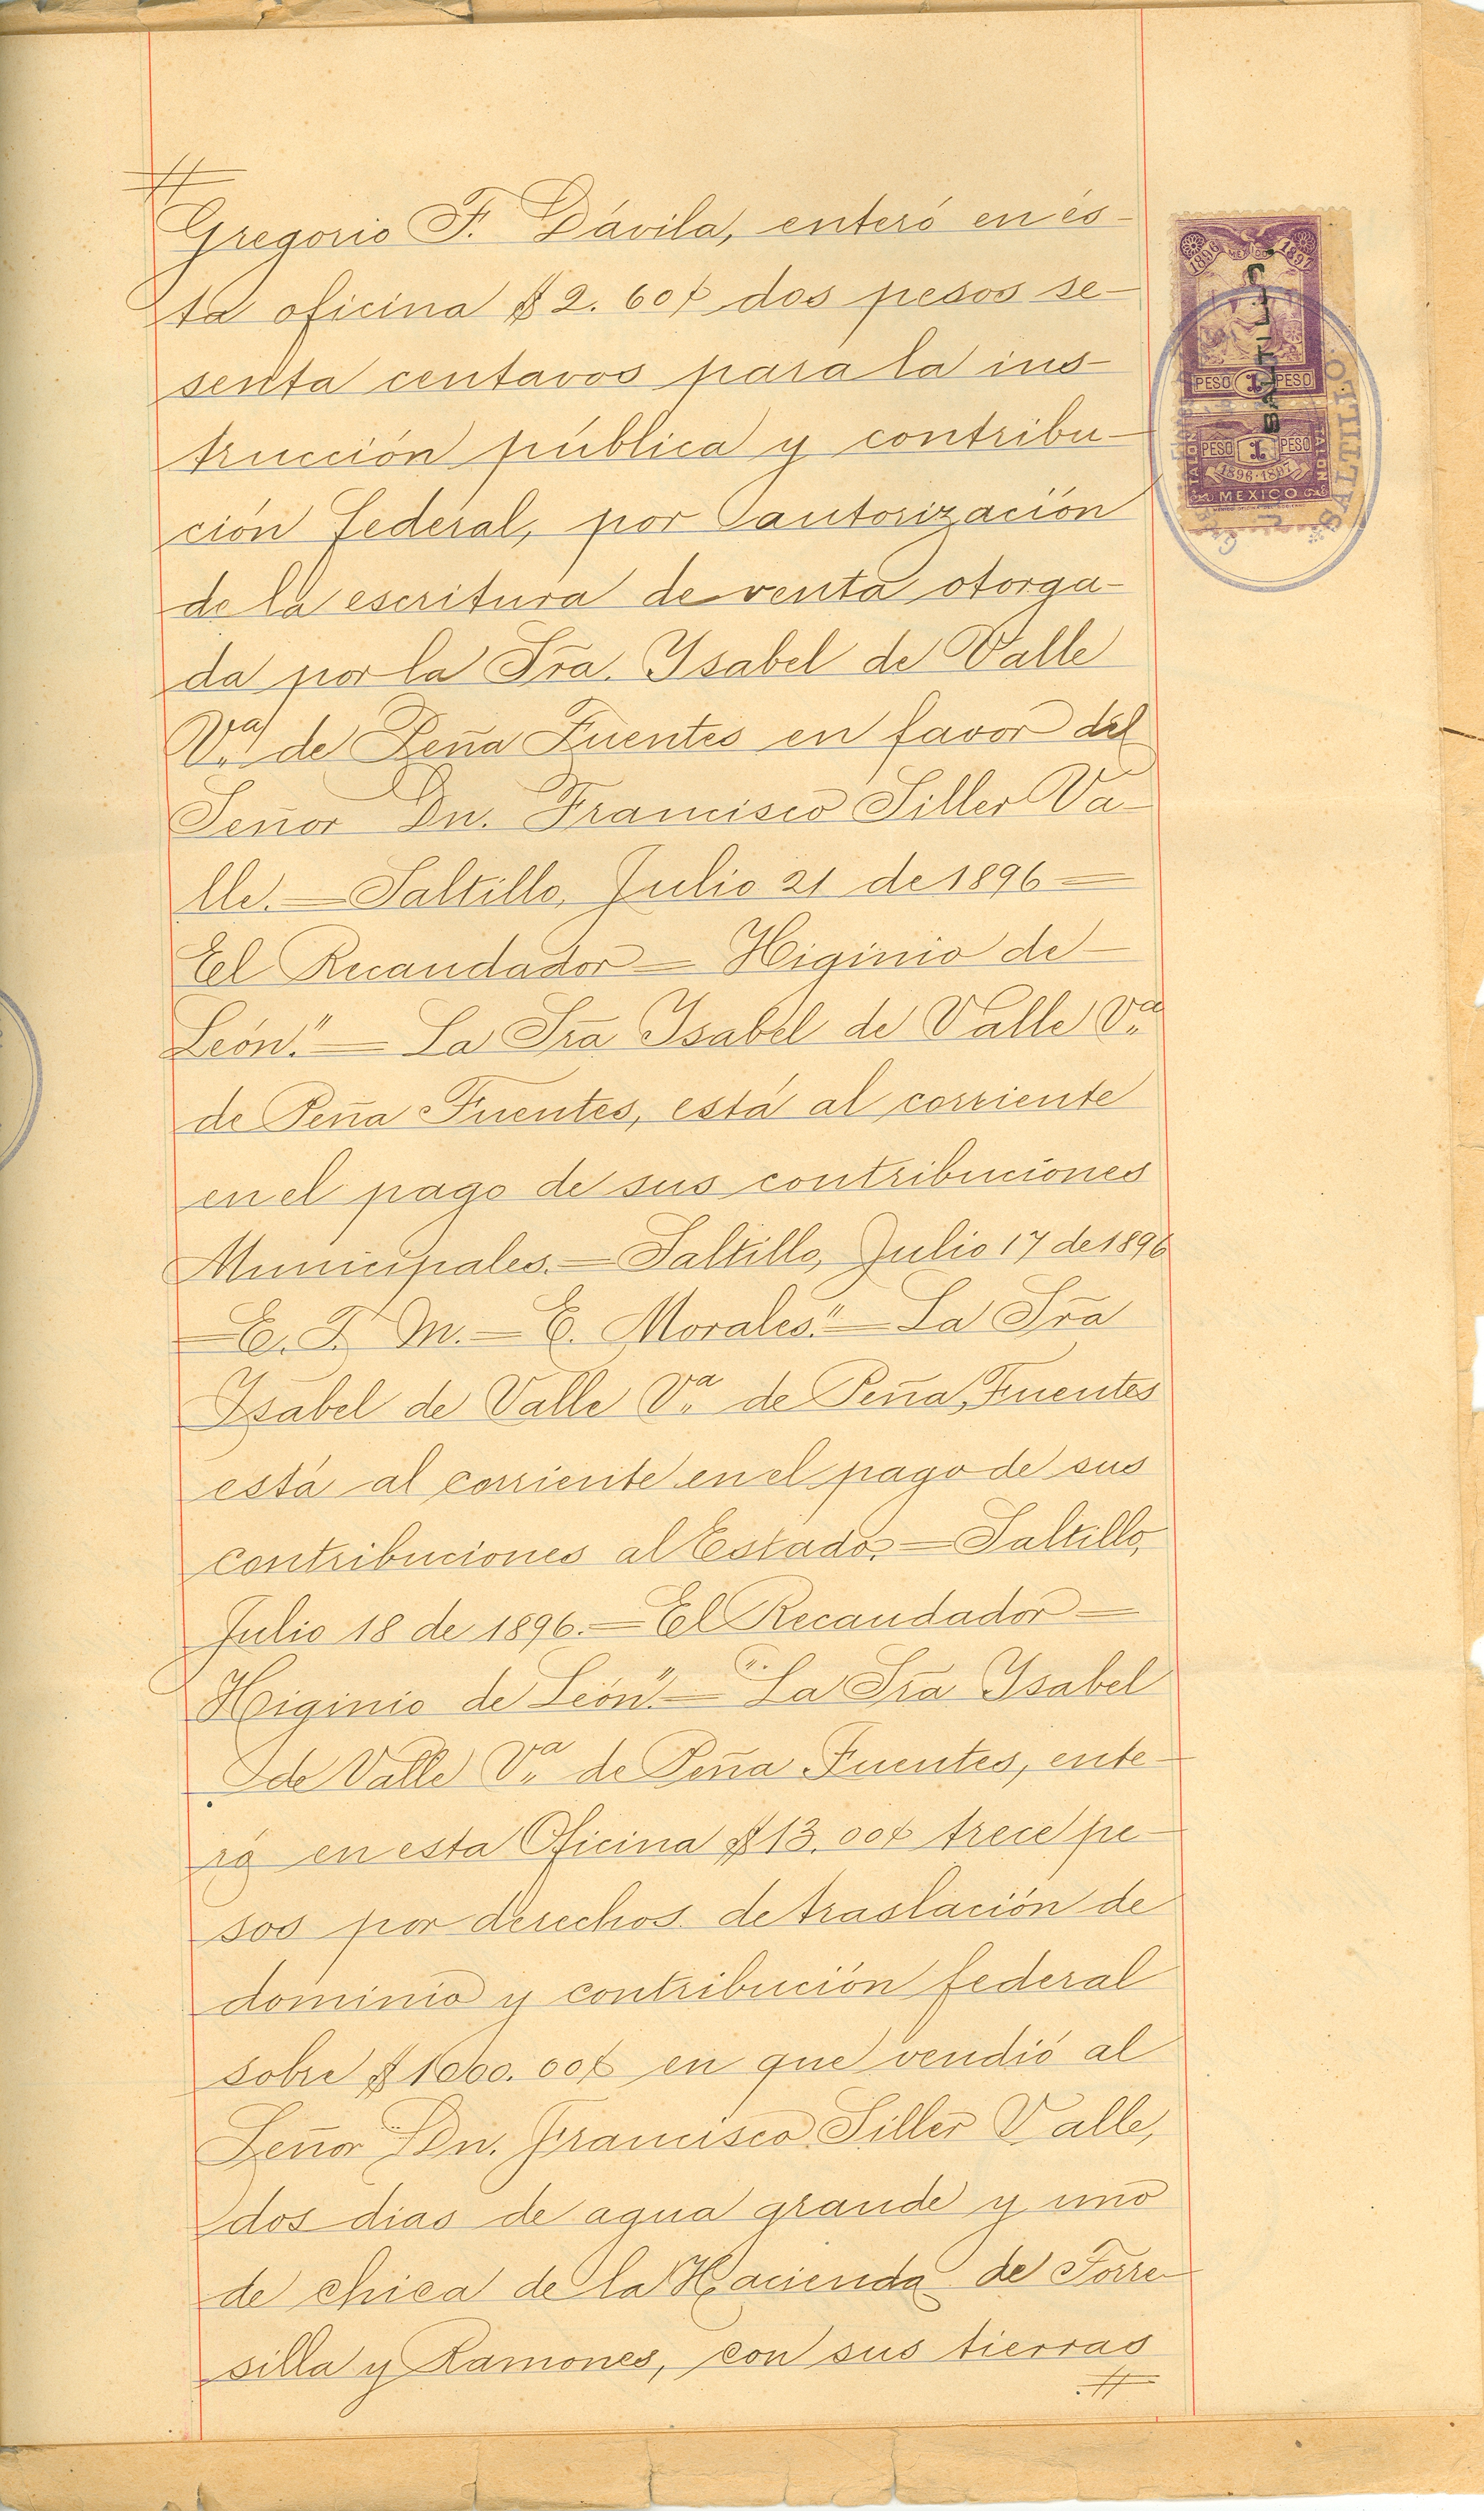 Gregorio F. Dávila, enteró en és-
ta oficina $2.60¢ dos pesos se-
senta centavos para la ins-
trucción pública y contribu-
ción federal, por autorización
de la escritura de venta otorga-
da por la Sra. Ysabel de Valle
Va. de Peña Fuentes en favor del
Señor Dn. Francisco Siller Va-
lle.=Saltillo, Julio 21 de 1896=
El Recaudador=Higinio de-
León."=La Sra Ysabel de Valle Va.
de Peña Fuentes, está al corriente
en el pago de sus contribuciones
Municipales.=Saltillo, Julio 17 de 1896
=E. T. M.=E. Morales."=La Sra
Ysabel de Valle Va. de Peña Fuentes
está al corriente en el pago de sus
contribuciones al Estado.=Saltillo,
Julio 18 de 1896.=El Recaudador=
Higinio de León"="La Sra Ysabel
de Valle Va. de Peña Fuentes, ente-
ró en esta Oficina $13.00¢ trece pe-
sos por derechos de traslación de
dominio y contribución federal
sobre $1000.00¢ en que vendió al
Señor Dn. Francisco Siller Valle,
dos dias de agua grande y uno
de chica de la Hacienda de Torre-
silla y Ramones, con sus tierras
1896 MEXICO 1897
SALTILLO
PESO 1 PESO
PESO 1 PESO
1896-1897
MEXICO
SALTILLO